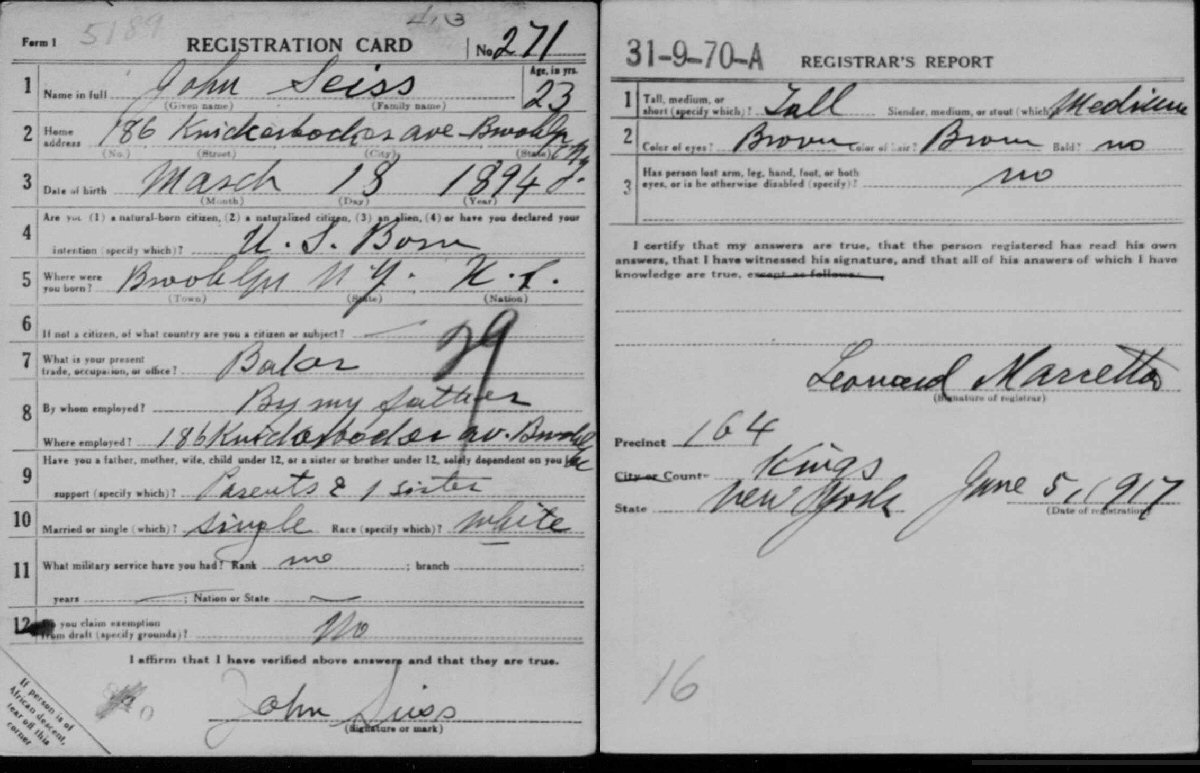 5189
413
Form 1 REGISTRATION CARD No. 271
1 Name in full John Seiss Age, in yrs. 23
(Given name) (Family name)
2 Home address 186 Knickerbocker ave Brooklyn N.Y.
(No.) (Street) (City) (State)
3 Date of birth March 18 1894
(Month) (Day) (Year)
4 Are you (1) a natural-born citizen, (2) a naturalized citizen, (3) an alien, (4) or have you declared your
intention (specify which)? U. S. Born
5 Where were you born? Brooklyn N.Y. U. S.
(Town) (State) (Nation)
6 If not a citizen, of what country are you a citizen or subject?
29
7 What is your present trade, occupation, or office? Baker
8 By whom employed? By my father
Where employed? 186 Knickerbocker av. Brooklyn
9 Have you a father, mother, wife, child under 12, or a sister or brother under 12, solely dependent on you for
support (specify which)? Parents & 1 sister
10 Married or single (which)? Single Race (specify which)? White
11 What military service have you had? Rank no ; branch ;
years ; Nation or State
12 Do you claim exemption from draft (specify grounds)? No
I affirm that I have verified above answers and that they are true.
John Seiss
(Signature or mark)
If person is of
African descent,
tear off this
corner
31-9-70-A REGISTRAR'S REPORT
1 Tall, medium, or short (specify which)? Tall Slender, medium, or stout (which)? Medium
2 Color of eyes? Brown Color of hair? Brown Bald? no
3 Has person lost arm, leg, hand, foot, or both eyes, or is he otherwise disabled (specify)? no
I certify that my answers are true, that the person registered has read his own
answers, that I have witnessed his signature, and that all of his answers of which I have
knowledge are true, except as follows:
Leonard Marretta
(Signature of registrar)
Precinct 164
City or County Kings
State New York June 5, 1917
(Date of registration)
16